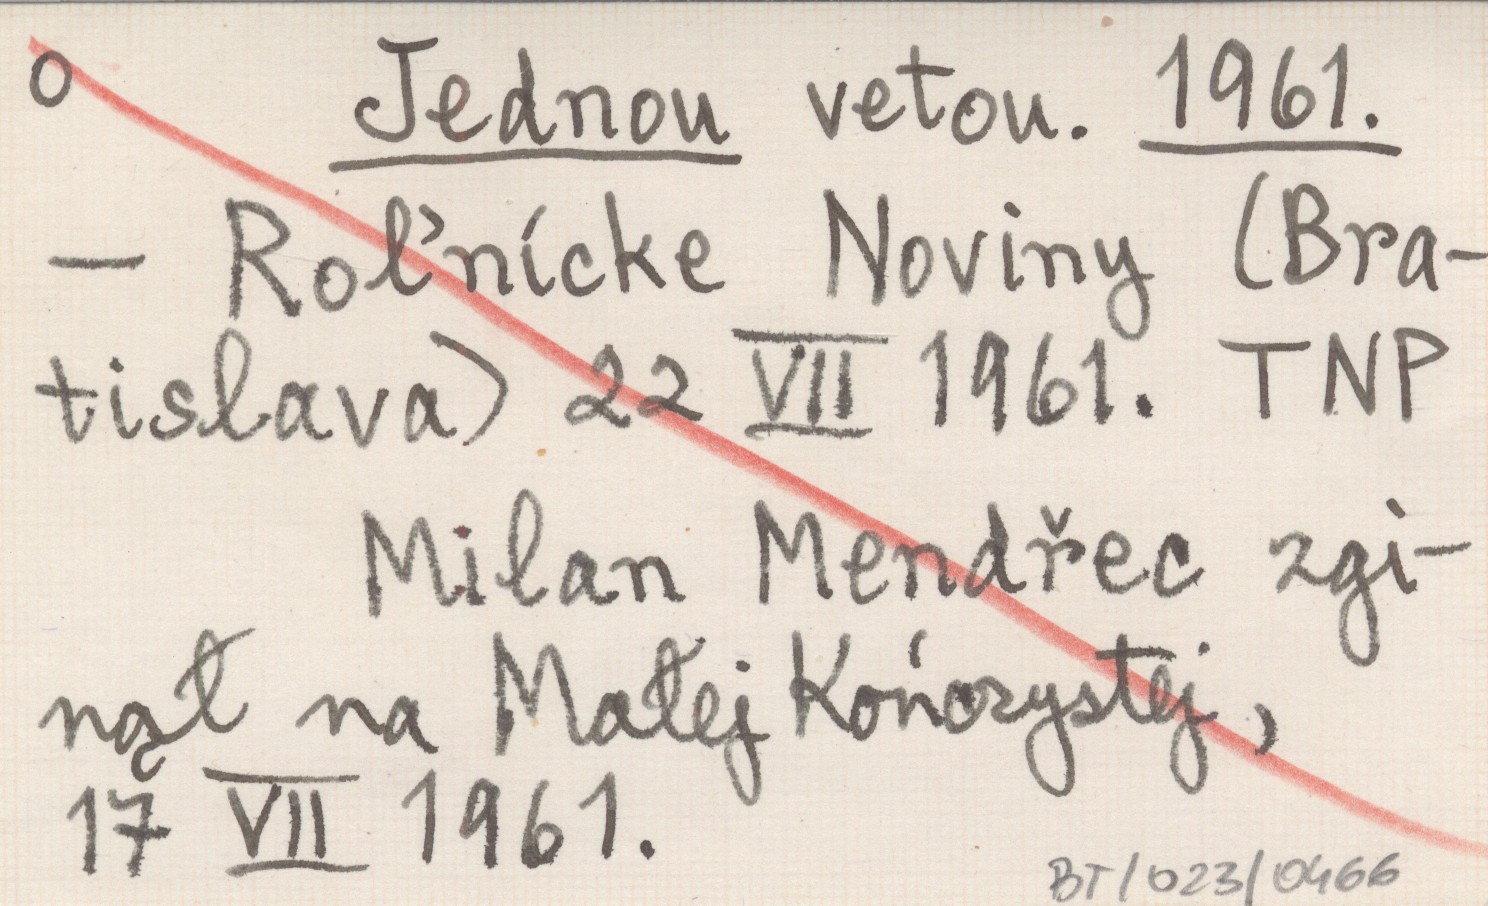 o Jednou vetou. 1961.
— Roľnícke Noviny (Bra-
tislava) 22 VII 1961. TNP
Milan Mendřec zgi-
nął na Małej Kończystej,
17 VII 1961.
BT/023/0466